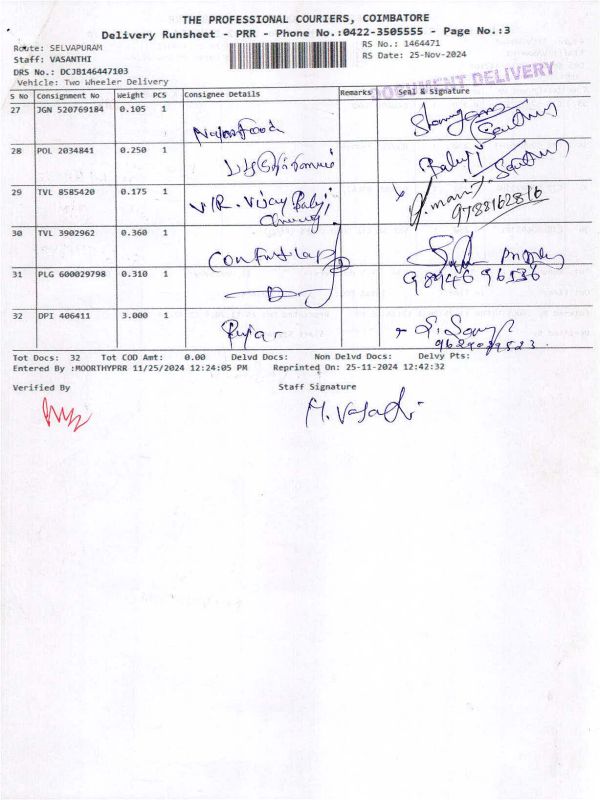 THE PROFESSIONAL COURIERS, COIMBATORE
Delivery Runsheet - PRR - Phone No.:0422-3505555 - Page No.:3
Route: SELVAPURAM
RS No.: 1464471
Staff: VASANTHI
RS Date: 25-Nov-2024
DRS No.: DCJB146447103
Vehicle: Two Wheeler Delivery
DOCUMENT DELIVERY
S No Consignment No Weight PCS Consignee Details Remarks Seal & Signature
27 JGN 520769184 0.105 1
28 POL 2034841 0.250 1 Balaji
29 TVL 8585420 0.175 1 V/R. Vijay Balaji 9788162816
30 TVL 3902962 0.360 1
31 PLG 600029798 0.310 1 98946 96136
32 DPI 406411 3.000 1
Tot Docs: 32 Tot COD Amt: 0.00 Delvd Docs: Non Delvd Docs: Delvy Pts:
Entered By :MOORTHYPRR 11/25/2024 12:24:05 PM Reprinted On: 25-11-2024 12:42:32
Verified By Staff Signature